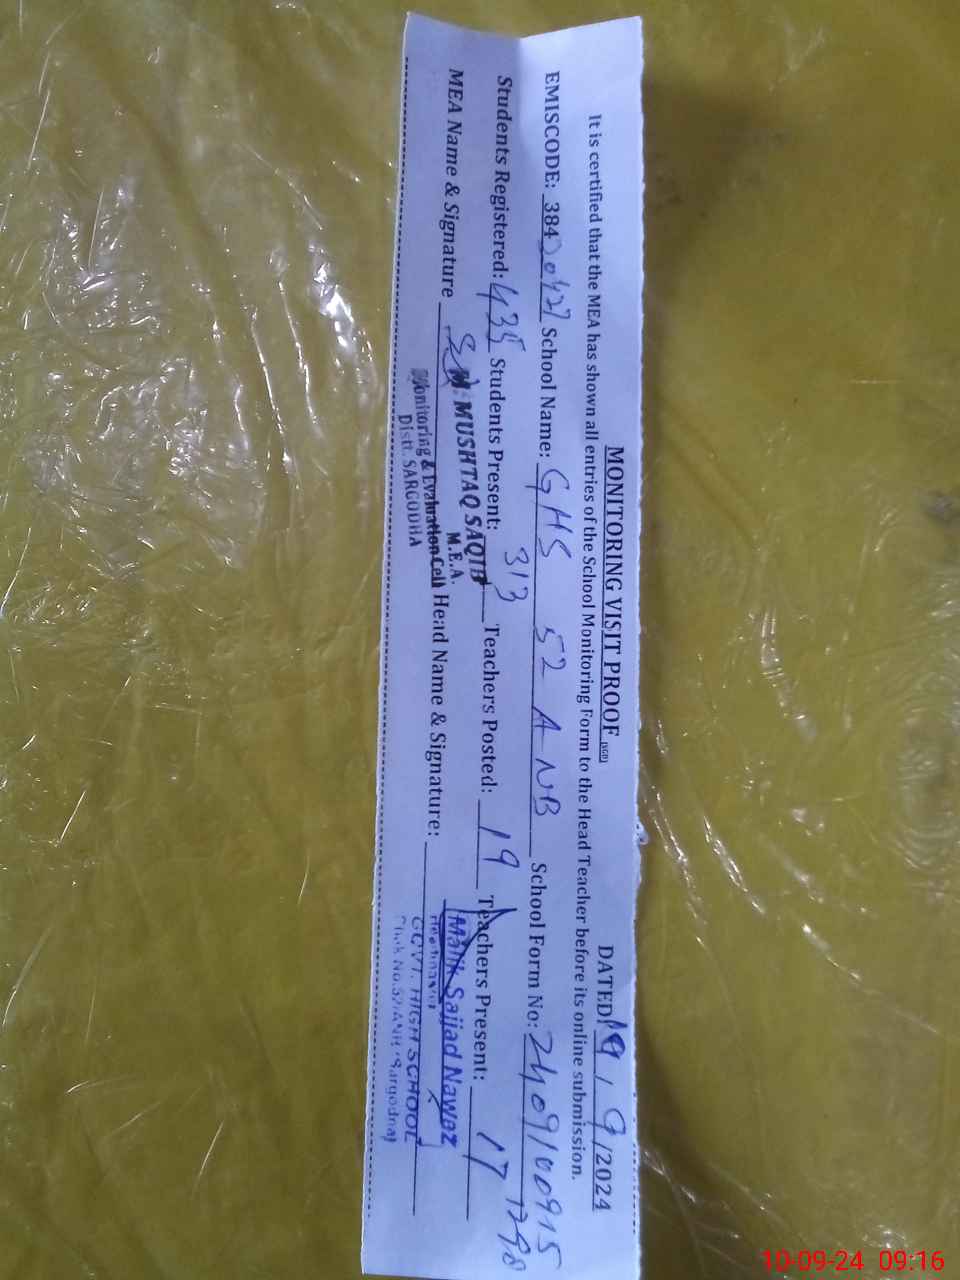 MONITORING VISIT PROOF (SGD) DATED: /9/2024
It is certified that the MEA has shown all entries of the School Monitoring Form to the Head Teacher before its online submission.
EMISCODE: 384 School Name: GHS 52 A NB School Form No: 240910091517298
Students Registered: 435 Students Present: 313 Teachers Posted: 19 Teachers Present: 17
MEA Name & Signature Head Name & Signature:
M. MUSHTAQ SAQIB
M.E.A.
Monitoring & Evaluation Cell
Distt. SARGODHA
Malik Sajjad Nawaz
Headmaster
GOVT. HIGH SCHOOL
Chak No.52/ANB (Sargodha)
10-09-24 09:16